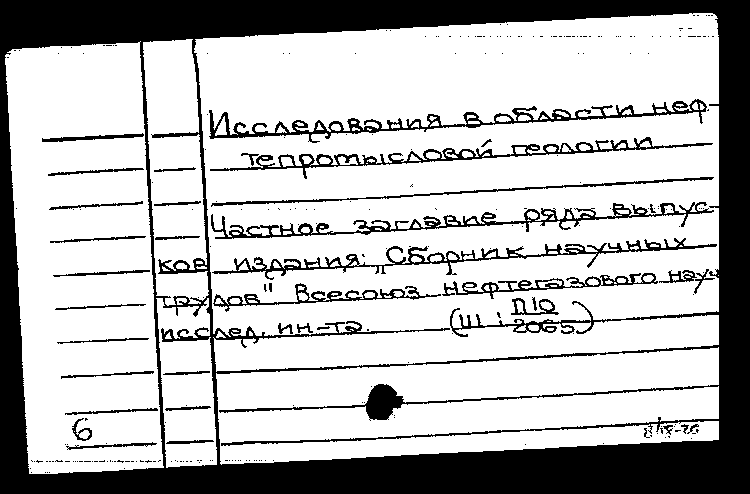 Исследования в области неф-
тепромысловой геологии
Частное заглавие ряда выпус-
ков издания: „Сборник научных
трудов" Всесоюз. нефтегазового науч
исслед. ин-та. (Ш : П10/2065)
6